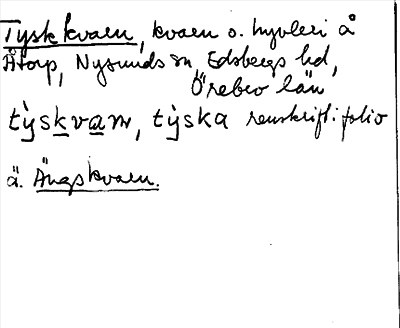 Tyskkvarn, kvarn o. hyvleri å
Åtorp, Nysunds sn, Edsbergs hd,
Örebro län
tỳskvaṛn, tỳska renskrift i folio
ä. Ängskvarn.